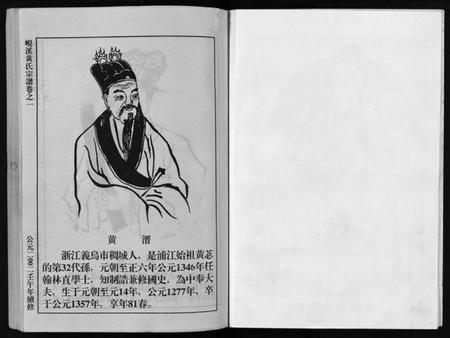 峴溪黃氏宗譜卷之一
黃　溍
浙江義烏市稠城人，是浦江始祖黃苾
的第32代孫，元朝至正六年公元1346年任
翰林直學士，知制誥兼修國史，為中奉大
夫，生于元朝至元14年，公元1277年，卒
于公元1357年，享年81春。
公元二00二壬午年續修